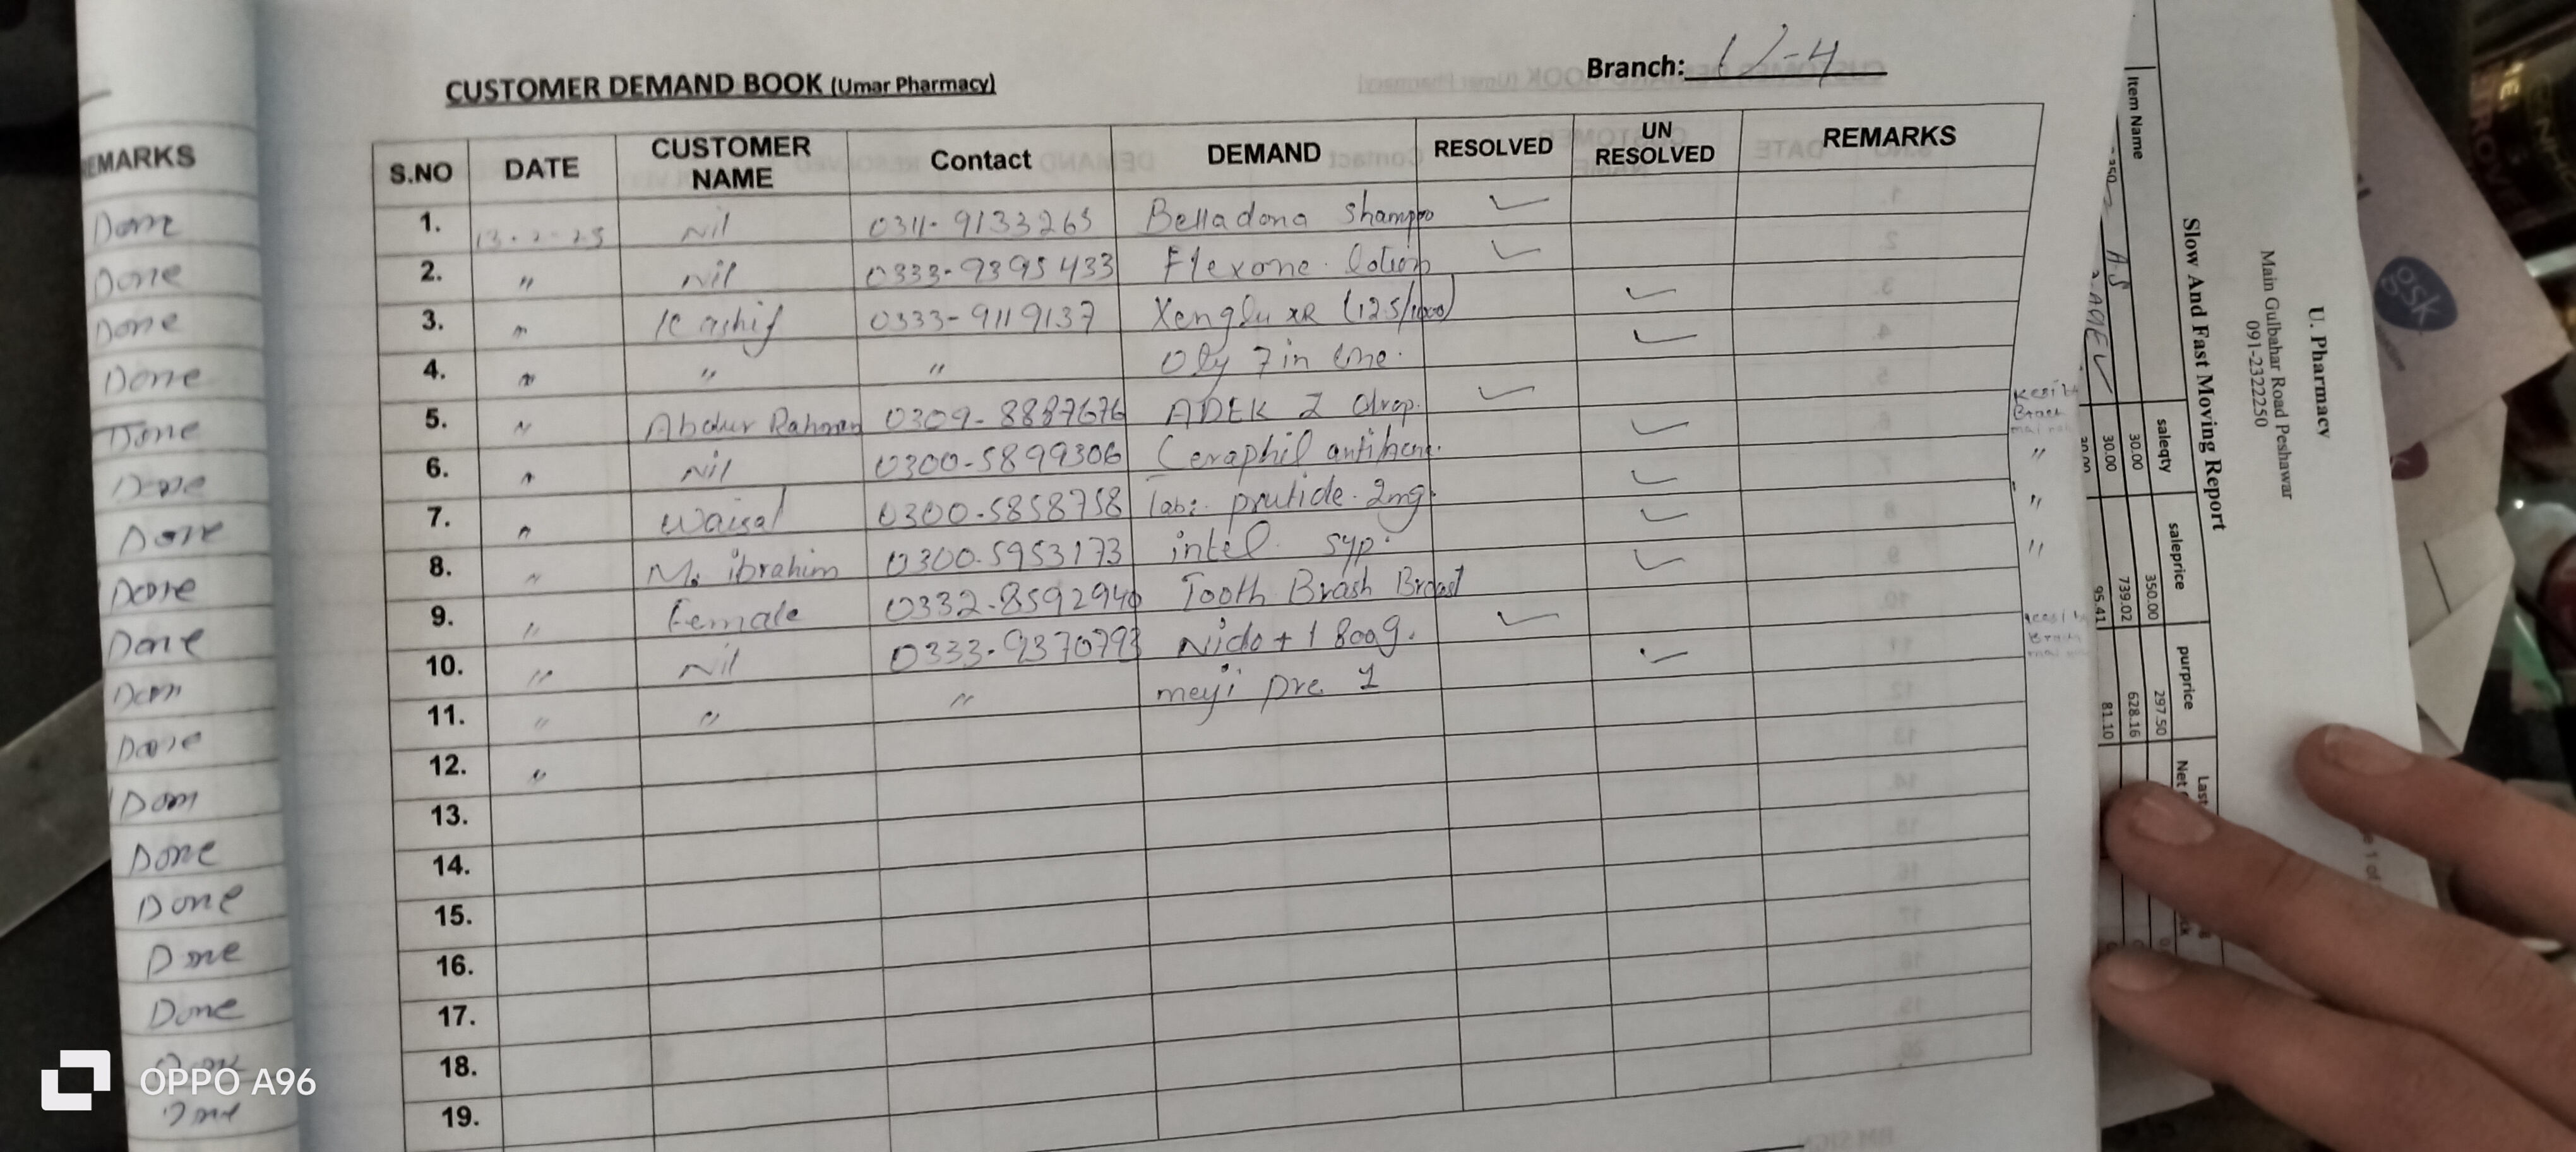 CUSTOMER DEMAND BOOK (Umar Pharmacy)
Branch: U-4
S.NO DATE CUSTOMER NAME Contact DEMAND RESOLVED UN RESOLVED REMARKS
1. 13.2.25 Nil 0311-9133265 Belladona Shampo ✓
2. " Nil 0333-9395433 Flexone. lotion ✓
3. " Kashif 0333-9119137 Xenglu XR (12.5/1000) ✓
4. " " " Oly 7 in one. ✓
5. " Abdur Rahman 0309-8887676 ADEK Z drop. ✓
6. " Nil 0300-5899306 Ceraphil ✓
7. " 0300-5858758 Tab: 2mg. ✓
8. " M. ibrahim 0300-5953173 intel syp. ✓
9. " Female 0332-8592940 Tooth Brash ✓
10. " Nil 0333-9370793 Nido + 1 800g. ✓
11. " " " meyi pre 1 ✓
12. "
13.
14.
15.
16.
17.
18.
19.
REMARKS
Done
Done
Done
Done
Done
Done
Done
Done
Done
Done
Done
Done
Done
Done
Done
Done
Done
U. Pharmacy
Main Gulbahar Road Peshawar
091-2322250
Slow And Fast Moving Report
Item Name saleqty saleprice purprice Last Net
30.00 350.00 297.50
30.00 739.02 628.16
95.41 81.10
gsk
OPPO A96